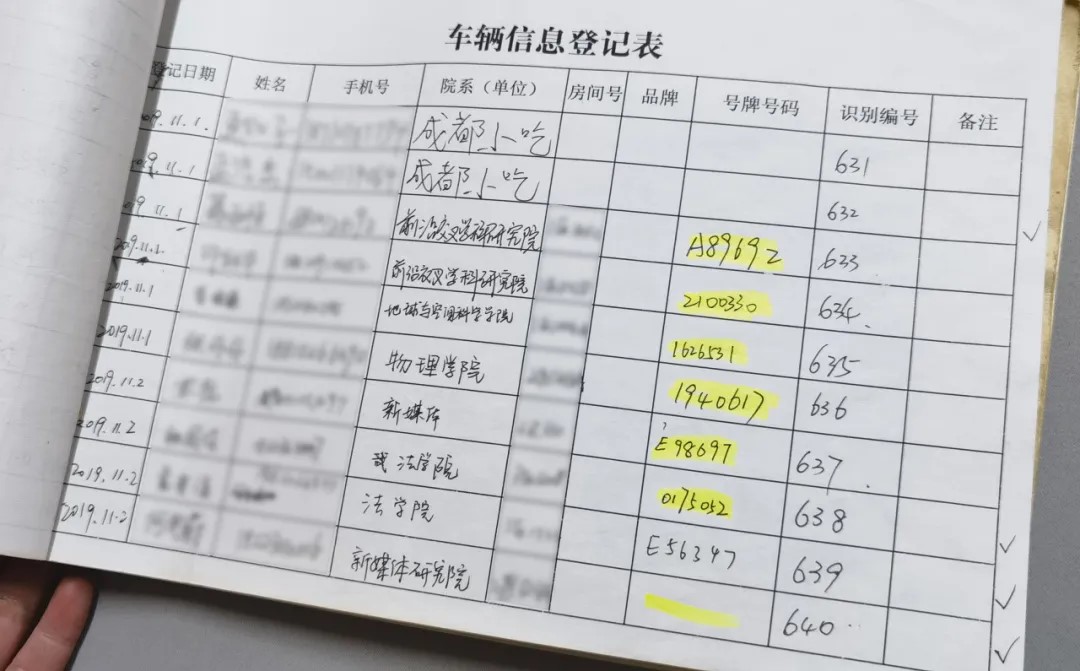 车辆信息登记表
登记日期 姓名 手机号 院系（单位） 房间号 品牌 号牌号码 识别编号 备注
2019.11.1. 成都小吃 631
2019.11.1 成都小吃 632
2019.11.1 前沿交叉学科研究院 A89692 633
2019.11.1. 前沿交叉学科研究院 2100330 634.
2019.11.1 地球与空间科学学院 1626531 635
2019.11.1 物理学院 1940617 636
2019.11.2 新媒体 E98697 637
2019.11.2 法学院 0175052 638
2019.11.2 法学院 E56347 639
2019.11.2 新媒体研究院 640